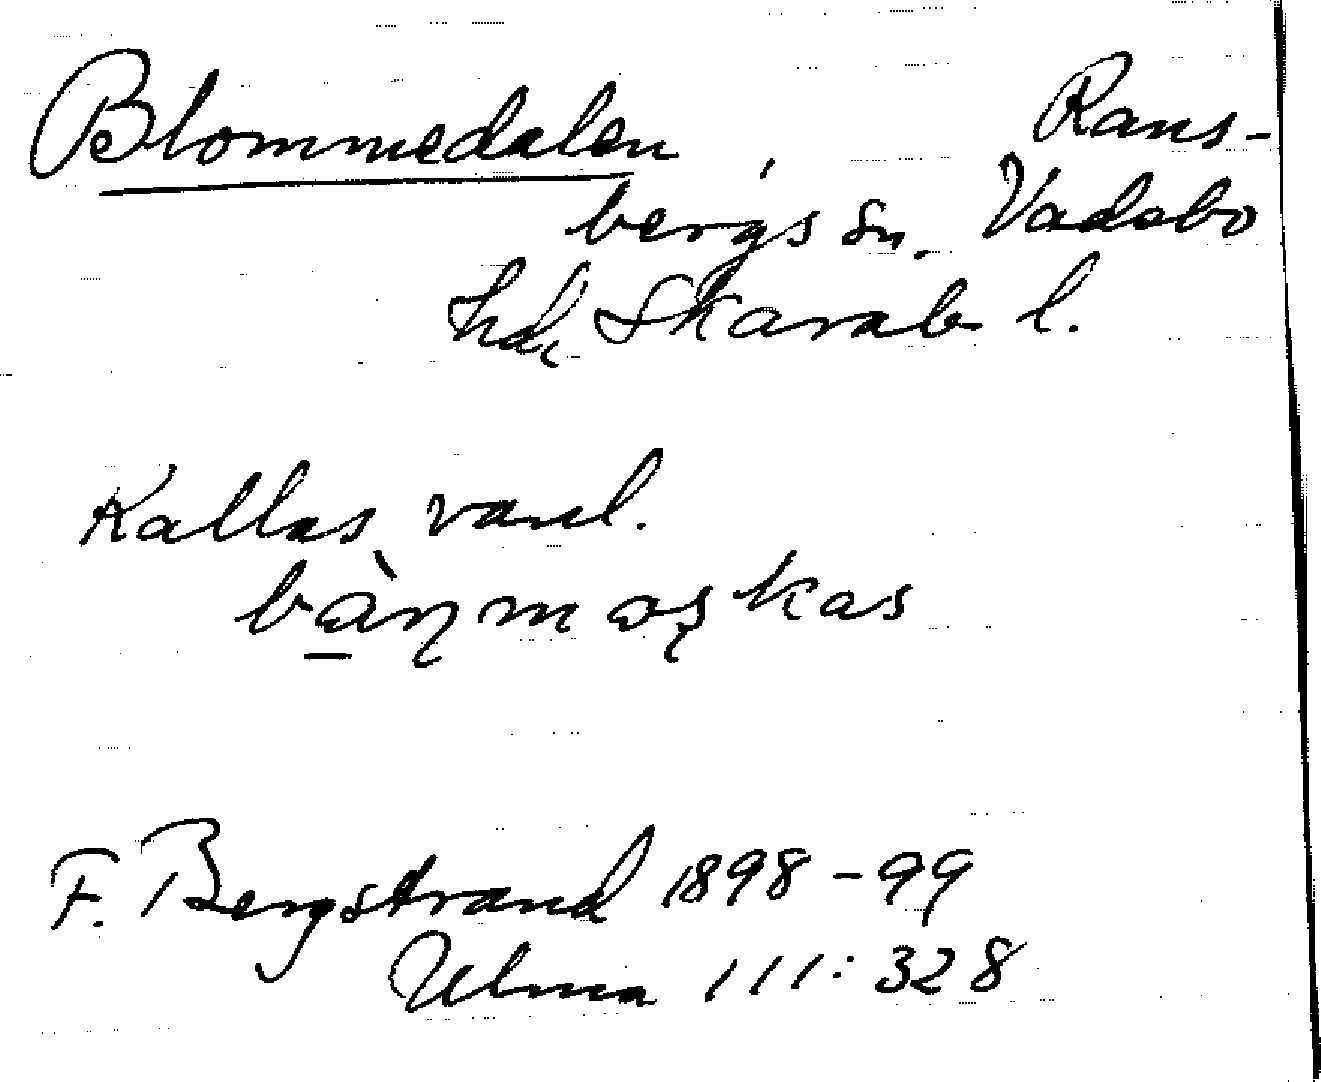 Blommedalen, Rans-
bergs sn. Vadsbo
hd, Skarab. l.
Kallas vanl.
bàŋmaʂkas
F. Bergstrand 1898-99
Ulma 111:328